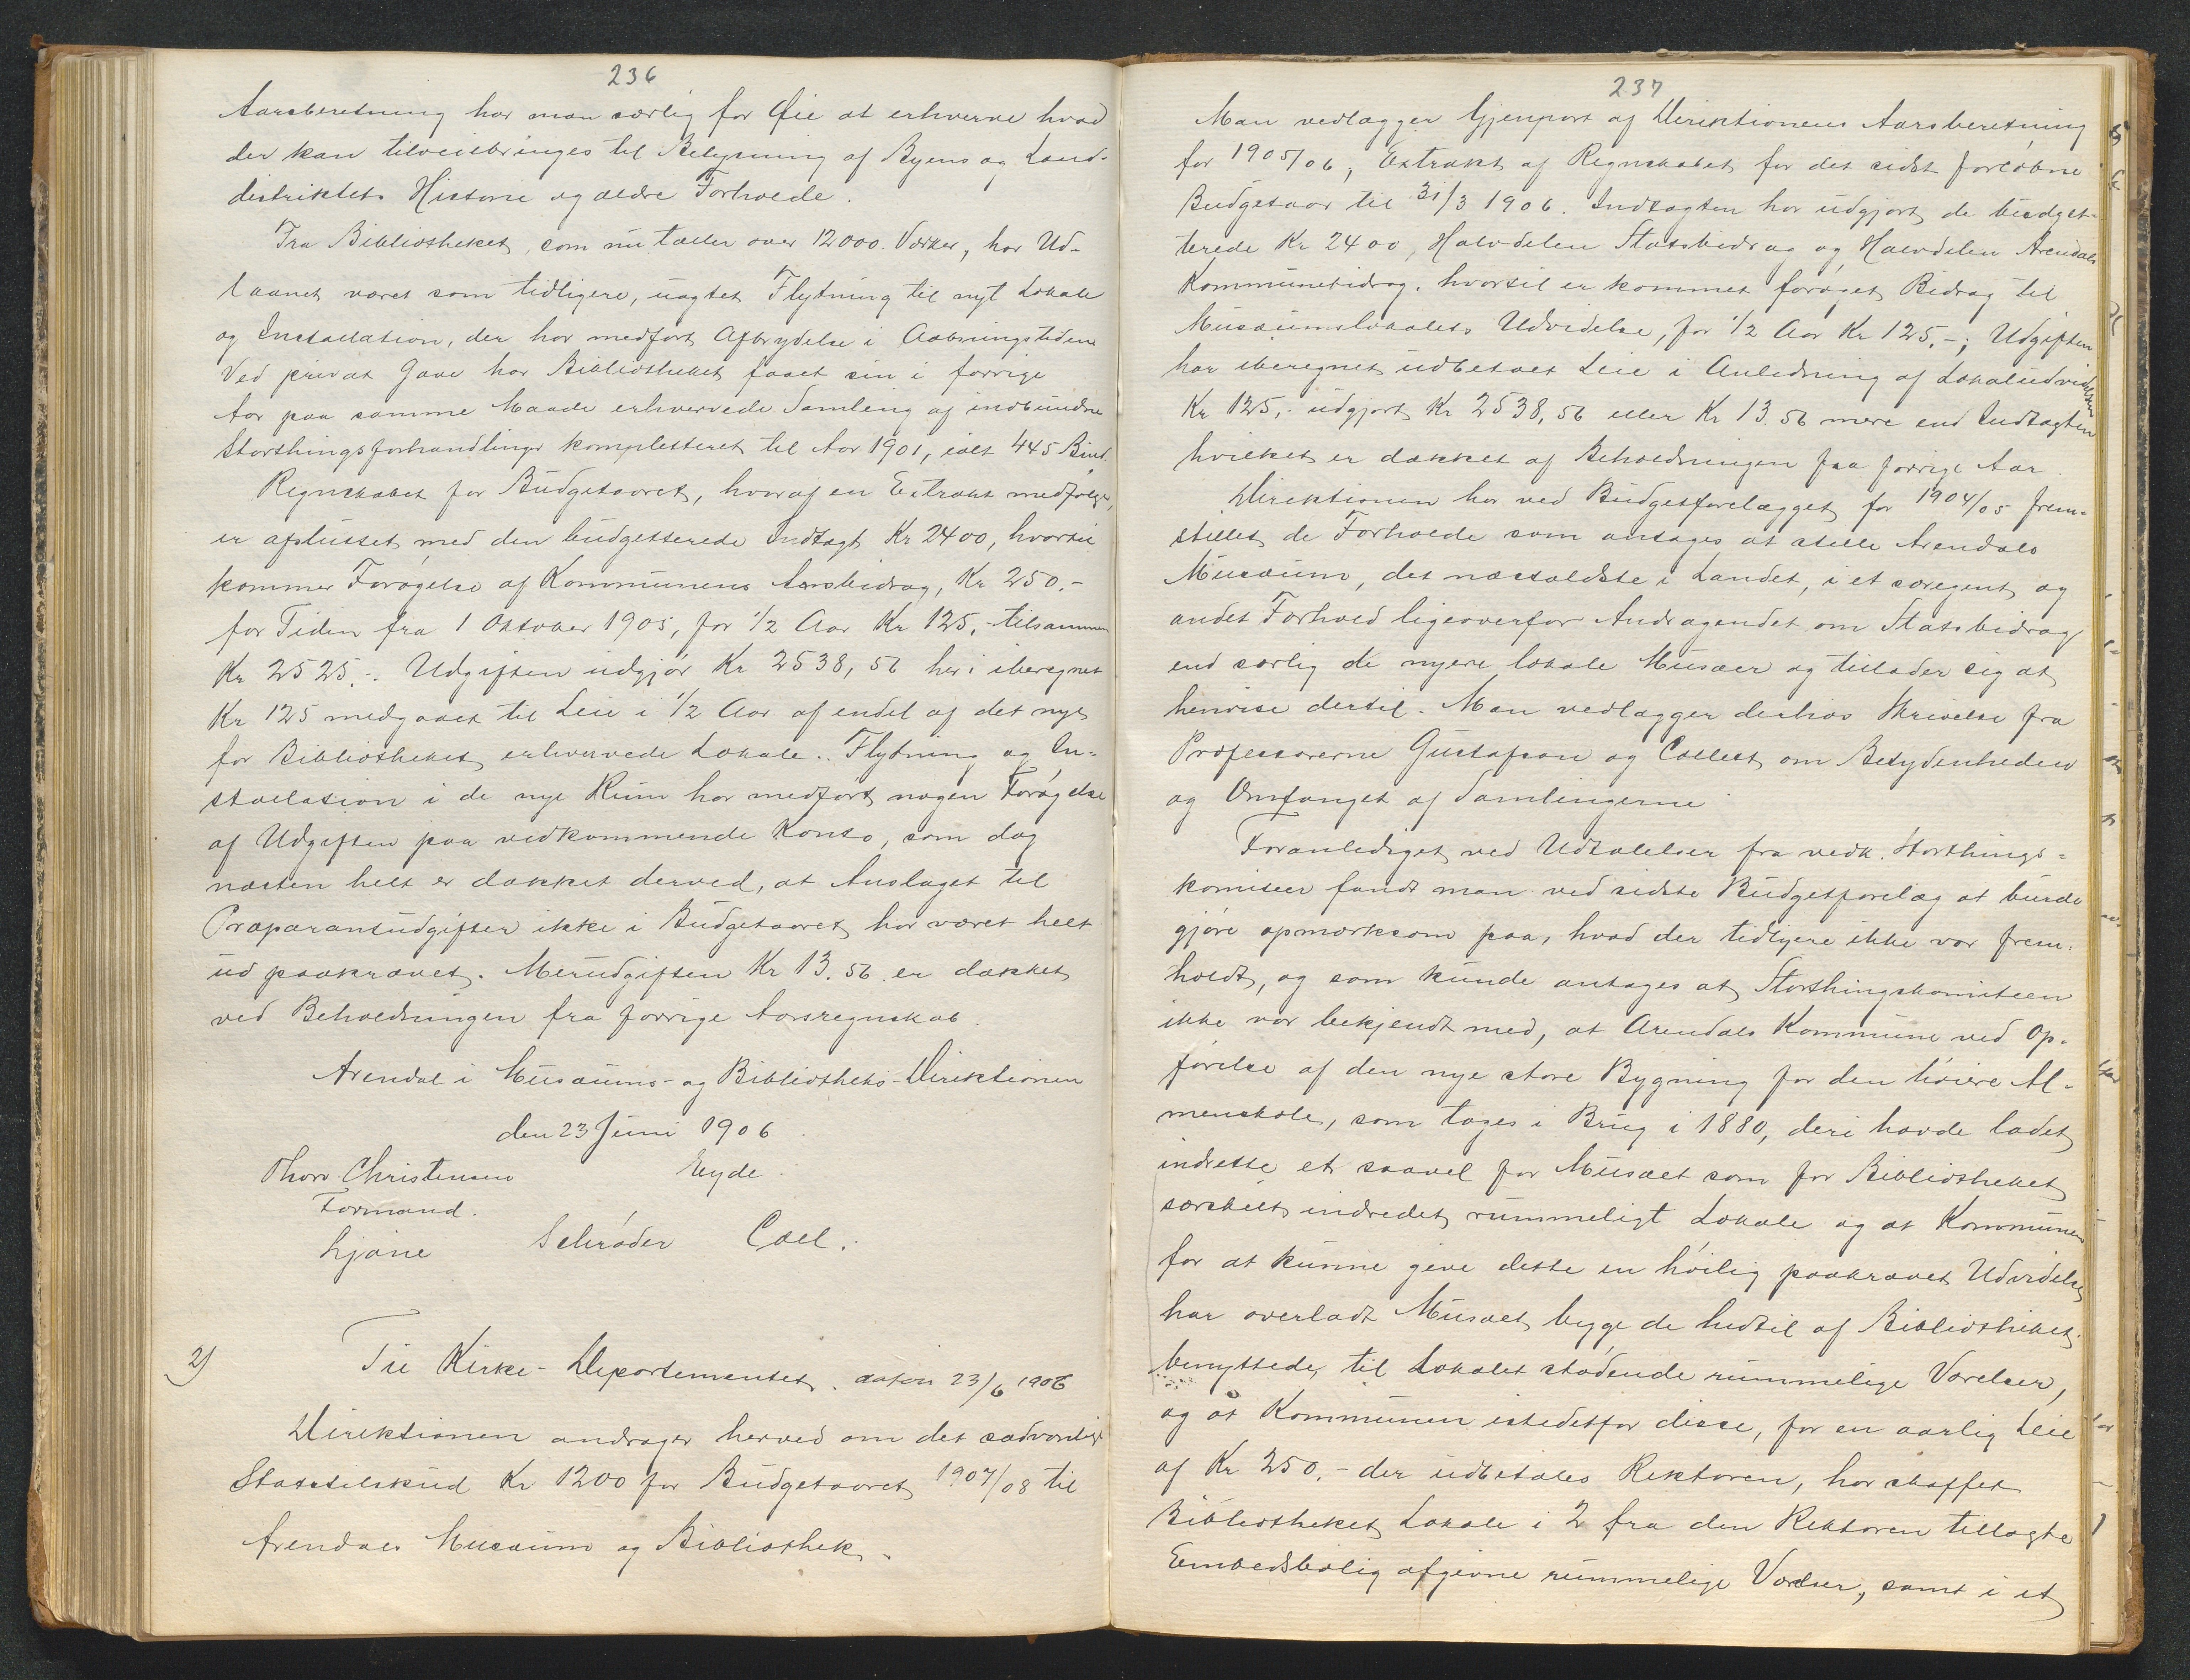 236
Aarsberetning har man særlig for Øie at erhverve hvad
der kan tilveiebringes til Belysning af Byens og Land-
distriktets Historie og ældre Forholde.
Fra Bibliotheket, som nu tæller over 12000 Værker, har Ud-
laanet været som tidligere, uagtet Flytning til nyt Lokale
og Installation, der har medført Afbrydelse i Aabningstiden
Ved privat Gave har Bibliotheket faaet sin i forrige
Aar paa samme Maade erhvervede Samling af indbundne
Storthingsforhandlinger kompletteret til Aar 1901, ialt 445 Bind.
Regnskabet for Budgetaaret, hvoraf en Extrakt medfølger,
er afsluttet med den budgetterede Indtægt Kr 2400, hvortil
kommer Forøgelse af Kommunens Aarsbidrag, Kr 250.-
for Tiden fra 1 Oktober 1905, for 1/2 Aar Kr 125,- tilsammen
Kr 2525.-. Udgiften udgjør Kr 2538,56 heri iberegnet
Kr 125 medgaaet til Leie i 1/2 Aar af endel af det nye
for Bibliotheket erhvervede Lokale. Flytning og In-
stallation i de nye Rum har medført nogen Forøgelse
af Udgiften paa vedkommende Konto, som dog
næsten helt er dækket derved, at Anslaget til
Præparantudgifter ikke i Budgetaaret har været helt
ud paakrævet. Merudgiften Kr 13.56 er dækket
ved Beholdningen fra forrige Aarsregnskab.
Arendal i Musæums- og Bibliotheks-Direktionen
den 23 Juni 1906.
Thorv. Christensen Eyde.
Formand.
Schrøder Coll.
2) Til Kirke-Departementet. datum 23/6 1906
Direktionen andrager herved om det sædvanlige
Statstilskud Kr 1200 for Budgetaaret 1907/08 til
Arendals Musæum og Bibliothek.
237
Man vedlægger Gjenpart af Direktionens Aarsberetning
for 1905/06, Extrakt af Regnskabet for det sidst forløbne
Budgetaar til 31/3 1906. Indtægten har udgjort de budget-
terede Kr 2400, Halvdelen Statsbidrag og Halvdelen Arendals
Kommunebidrag, hvortil er kommet forøget Bidrag til
Musæumslokalets Udvidelse, for 1/2 Aar Kr 125.-; Udgiften
har iberegnet udbetalt Leie i Anledning af Lokaludvidelsen
Kr 125,- udgjort Kr 2538,56 eller Kr 13.56 mere end Indtægten
hvilket er dækket af Beholdningen fra forrige Aar.
Direktionen har ved Budgetforelægget for 1904/05 frem-
stillet de Forholde som antages at stille Arendals
Musæum, det næstældste i Landet, i et særegent og
andet Forhold ligeoverfor Andragendet om Statsbidrag
end særlig de nyere lokale Musæer og tillader sig at
henvise dertil. Man vedlægger derhos Skrivelse fra
Professorerne Gustafson og Collett om Betydenheden
og Omfanget af Samlingerne
Foranlediget ved Udtalelser fra vedk. Storthings-
komiteer fandt man ved sidste Budgetforelæg at burde
gjøre opmærksom paa, hvad der tidligere ikke var frem-
holdt, og som kunde antages at Storthingskomiteen
ikke var bekjendt med, at Arendals Kommune ved Op-
førelse af den nye store Bygning for den høiere Al-
menskole, som toges i Brug i 1880, deri havde ladet
indrette et saavel for Musæet som for Bibliotheket
særskilt indredet rummeligt Lokale og at Kommunen
for at kunne give dette en høilig paakrævet Udvidelse
har overladt Musæet begge de hidtil af Bibliotheket
benyttede, til Lokalet stødende rummelige Værelser,
og at Kommunen istedetfor disse, for en aarlig Leie
af Kr 250.- der udbetales Rektoren, har skaffet
Bibliotheket Lokale i 2 fra den Rektoren tillagte
Embedsbolig afgivne rummelige Værelser, samt i et